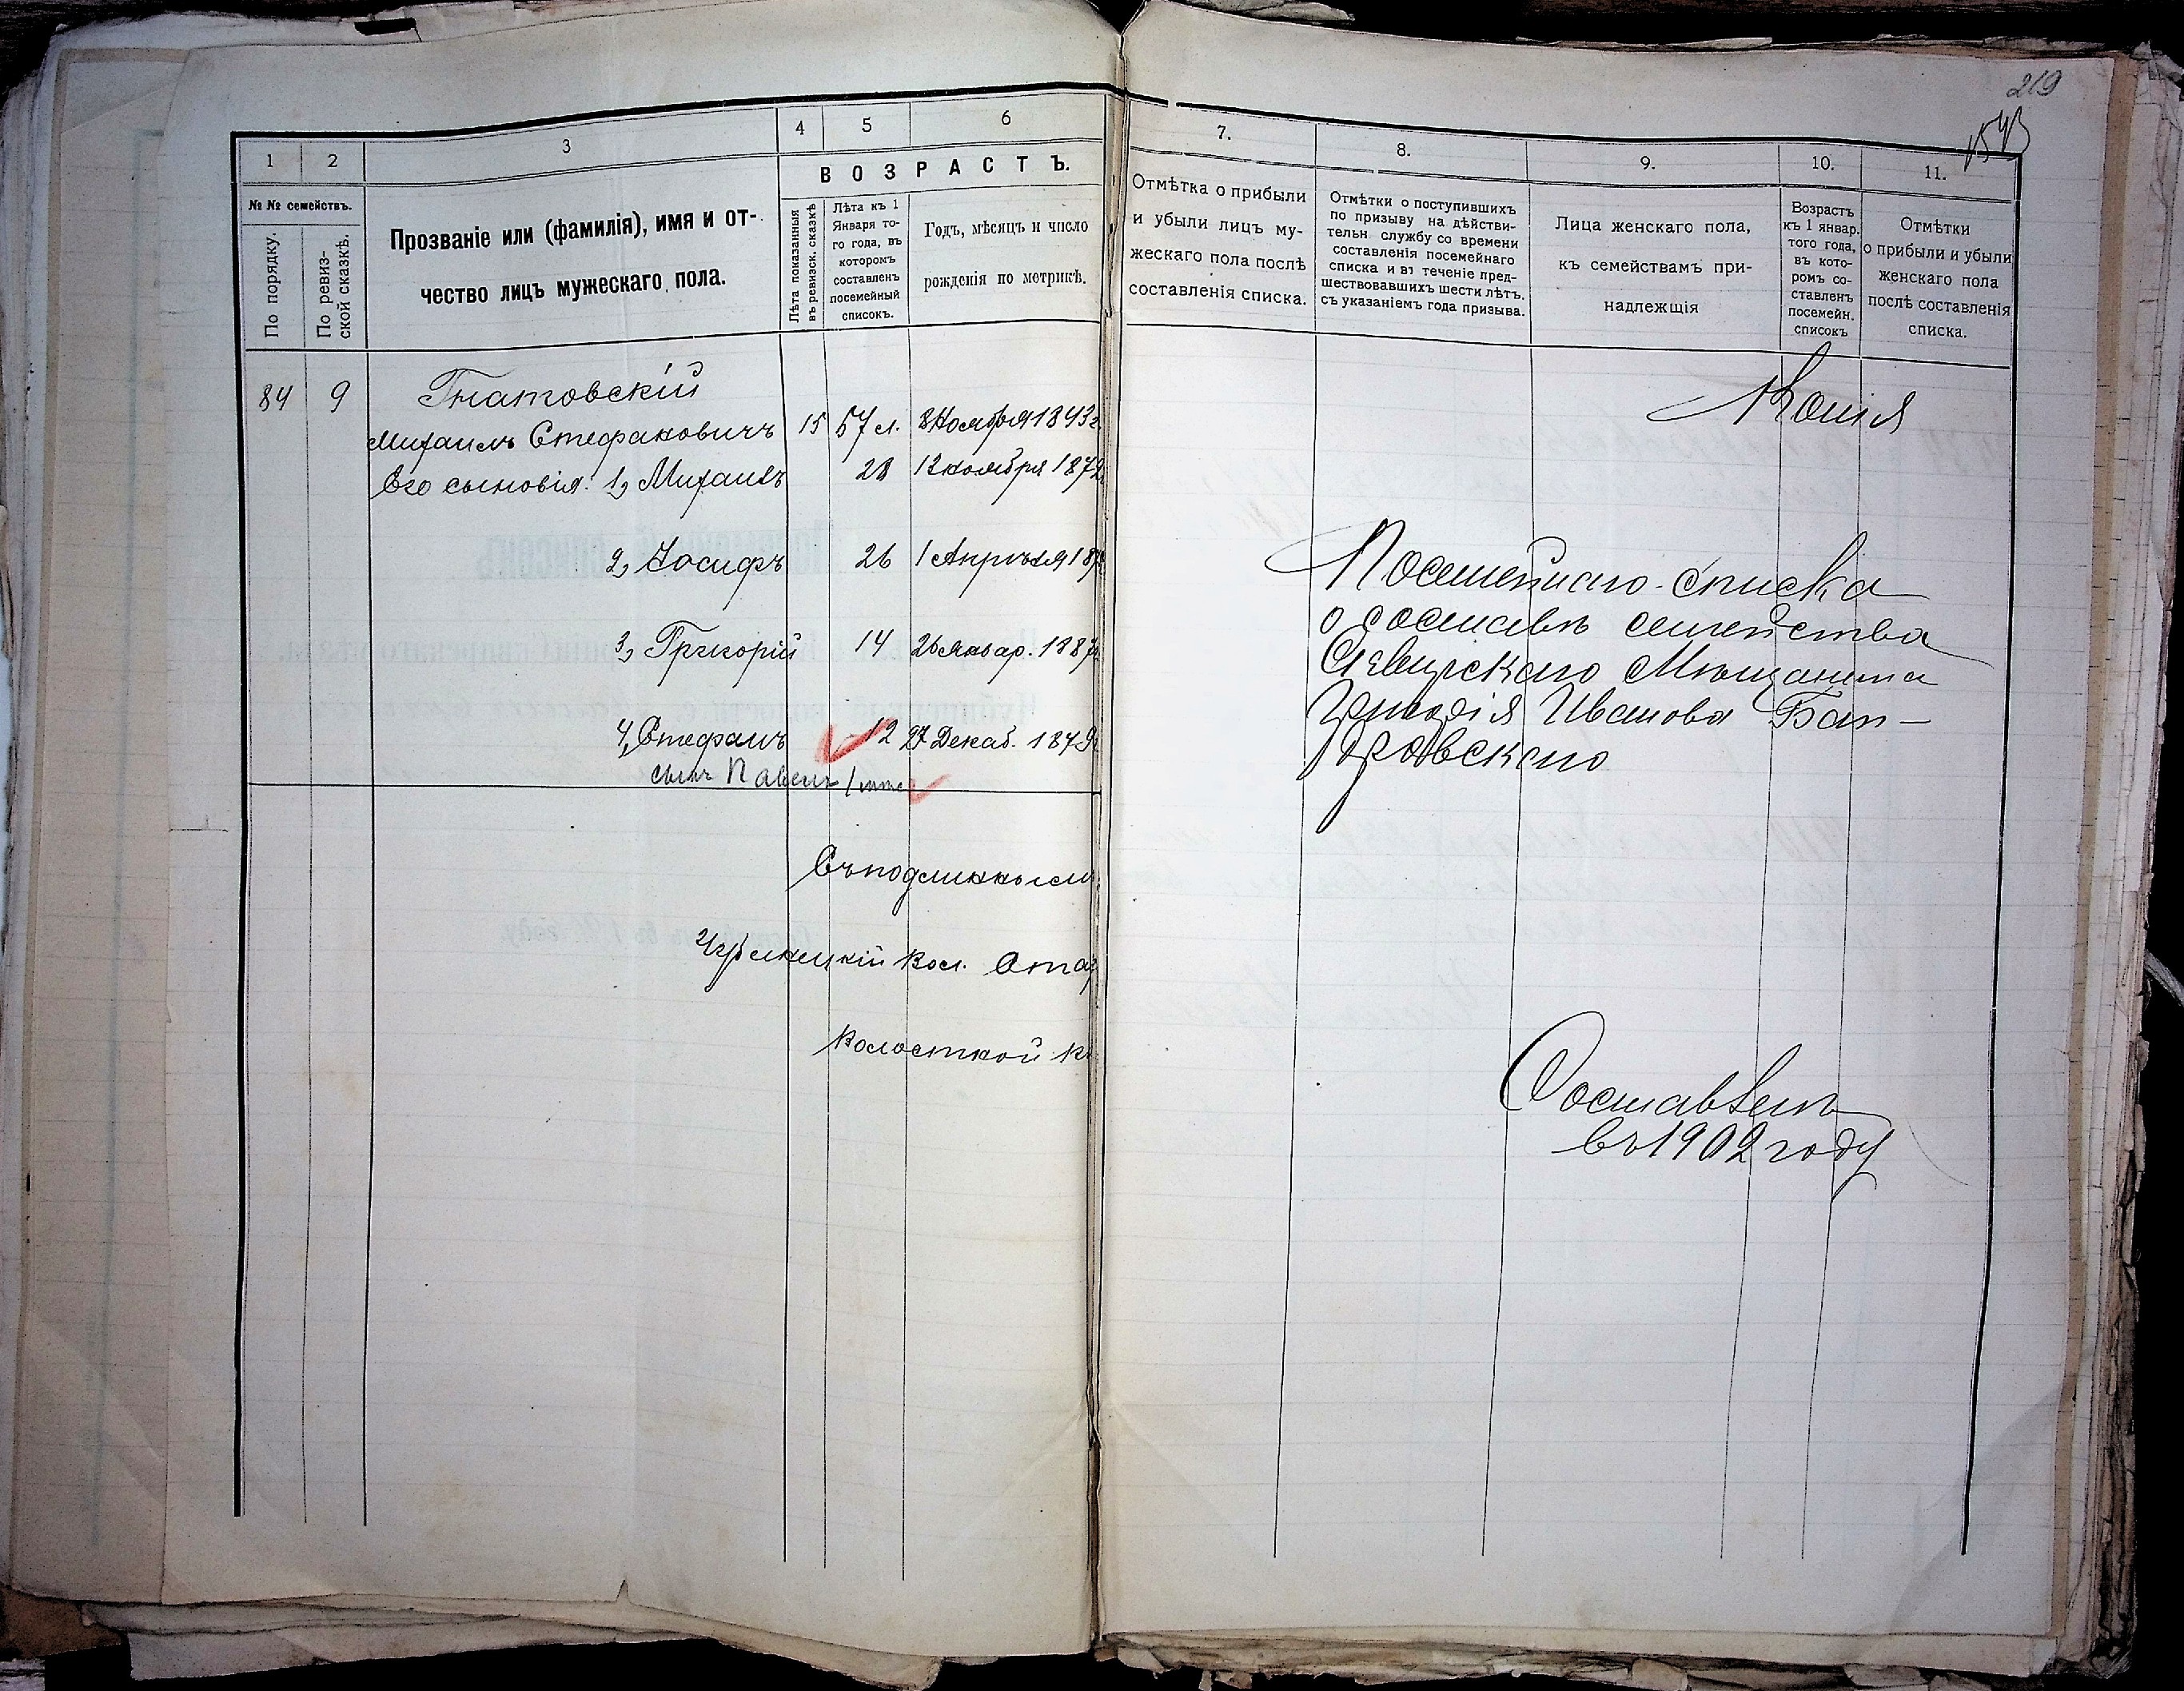 1
2
3
4
5
6
№ № семействъ.
По порядку.
По ревиз-
ской сказкѣ.
Прозваніе или (фамилія), имя и от-
чество лицъ мужескаго пола.
ВОЗРАСТЪ.
Лѣта показанныя
въ ревизск. сказкѣ
Лѣта къ 1
Января то-
го года, въ
которомъ
составленъ
посемейный
списокъ.
Годъ, мѣсяцъ и число
рожденія по метрикѣ.
84 9 Гнатовскій
Михаилъ Стефановичъ 15 57 л. 8 Ноября 1843 г
Его сыновія: 1, Михаилъ 28 12 ноября 1872
2, Іосифъ 26 1 Апрѣля 187
3, Григорій 14 26 Январ. 1887
4, Стефанъ 12 27 Декаб. 1879
сынъ Павелъ
Съ подлиннымъ
Вол. Стар
Волостной
219
7.
8.
9.
10.
11.
Отмѣтка о прибыли
и убыли лицъ му-
жескаго пола послѣ
составленія списка.
Отмѣтки о поступившихъ
по призыву на дѣйстви-
тельн службу со времени
составленія посемейнаго
списка и въ теченіе пред-
шествовавшихъ шести лѣтъ.
съ указаніемъ года призыва.
Лица женскаго пола,
къ семействамъ при-
надлежщія
Возрастъ
къ 1 январ.
того года,
въ кото-
ромъ со-
ставленъ
посемейн.
списокъ
Отмѣтки
о прибыли и убыли
женскаго пола
послѣ составленія
списка.
Копія
Посемейнаго списка
о составѣ семейства
Сквирскаго Мѣщанина
Григорія Иванова Бан-
дровскаго
Составленъ
въ 1902 году